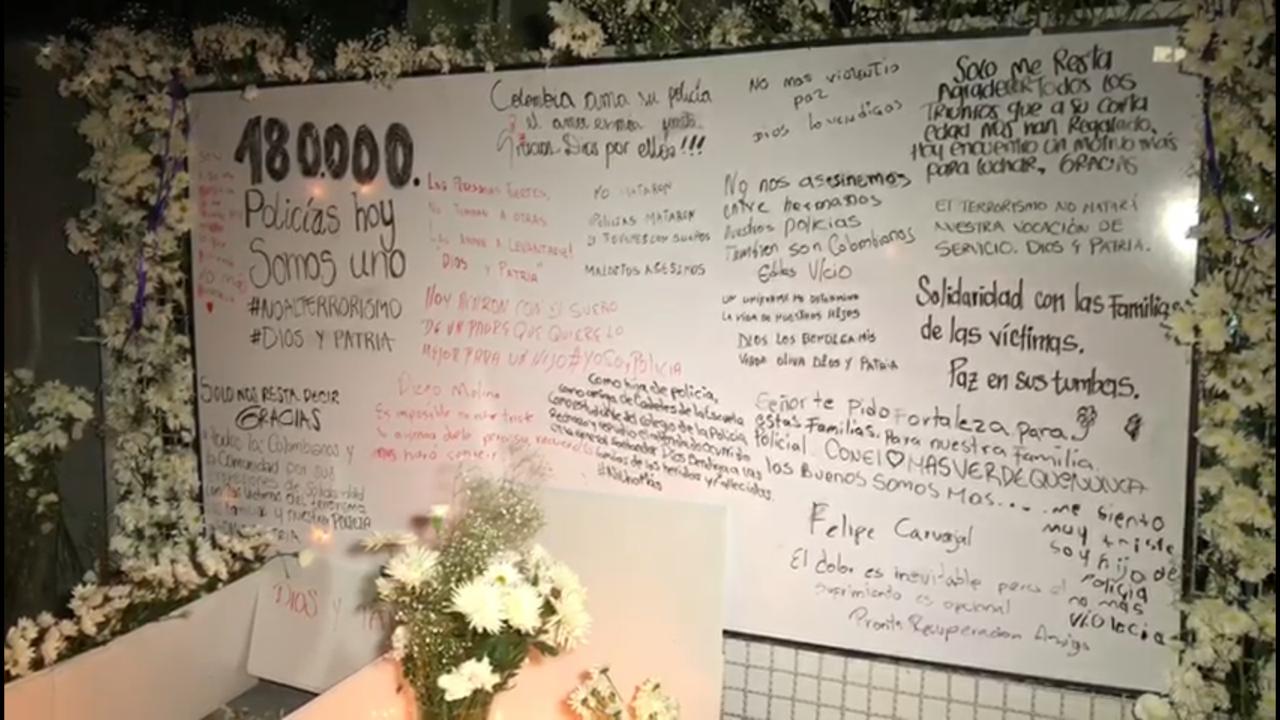 180.000.
Policías hoy
Somos uno
#NOALTERRORISMO
#DIOS Y PATRIA
Colombia ama su policía
Dios por ellos!!!
NO MAS violentia
paz
DIOS lo vendigas
Solo me Resta
Agradecer Todos los
Triunfos que a su corta
edad nos han Regalado.
Hoy encuentro un motivo más
para luchar, GRACIAS
Las Personas Fuertes,
No Tumban A OTRAS
Las AYUDAN A Levantarse!
"DIOS Y PATRIA"
NO MATARON
POLICIAS MATARON
21 JOVENES CON SUEÑOS
MALDITOS ASESINOS
No nos asesinemos
entre hermanos
Nuestros policias
Tambien son Colombianos
EL TERRORISMO NO MATARÁ
NUESTRA VOCACIÓN DE
SERVICIO. DIOS Y PATRIA.
UN uniforme No determina
LA VIDA DE NUESTROS HIJOS
DIOS LOS BENDIGA MIS
VERDE OLIVA DIOS Y PATRIA
Solidaridad con las Familias
de las víctimas.
Paz en sus tumbas.
HOY MATARON CON EL SUEÑO
DE UN PADRE QUE QUIERE LO
MEJOR PARA UN HIJO #YOSOYPOLICIA
SOLO NOS RESTA DECIR
GRACIAS
a todos los Colombianos y
la Comunidad por sus
expresiones de Solidaridad
con las victimas del terrorismo
sus familias y nuestra POLICIA
Diego Molina
Es imposible no estar triste
nos hará sonreir
Como hija de policía,
como amiga de Cadetes de la Escuela
Como estudiante del colegio de la Policía
Rechazo y repudio el atentado ocurrido
Santander Dios bendiga a las
familias de los heridos y fallecidos.
#NiUnoMás
Señor te pido Fortaleza para
estas Familias. Para nuestra Familia
Policial. CON EL ♡ MAS VERDE QUE NUNCA
los Buenos Somos Mas....
me siento
muy triste
soy hijo de
policia
no más
violacia
Felipe Carvajal
El dolor es inevitable pero el
sufrimiento es opcional
Pronta Recuperacion Amigo
DIOS Y